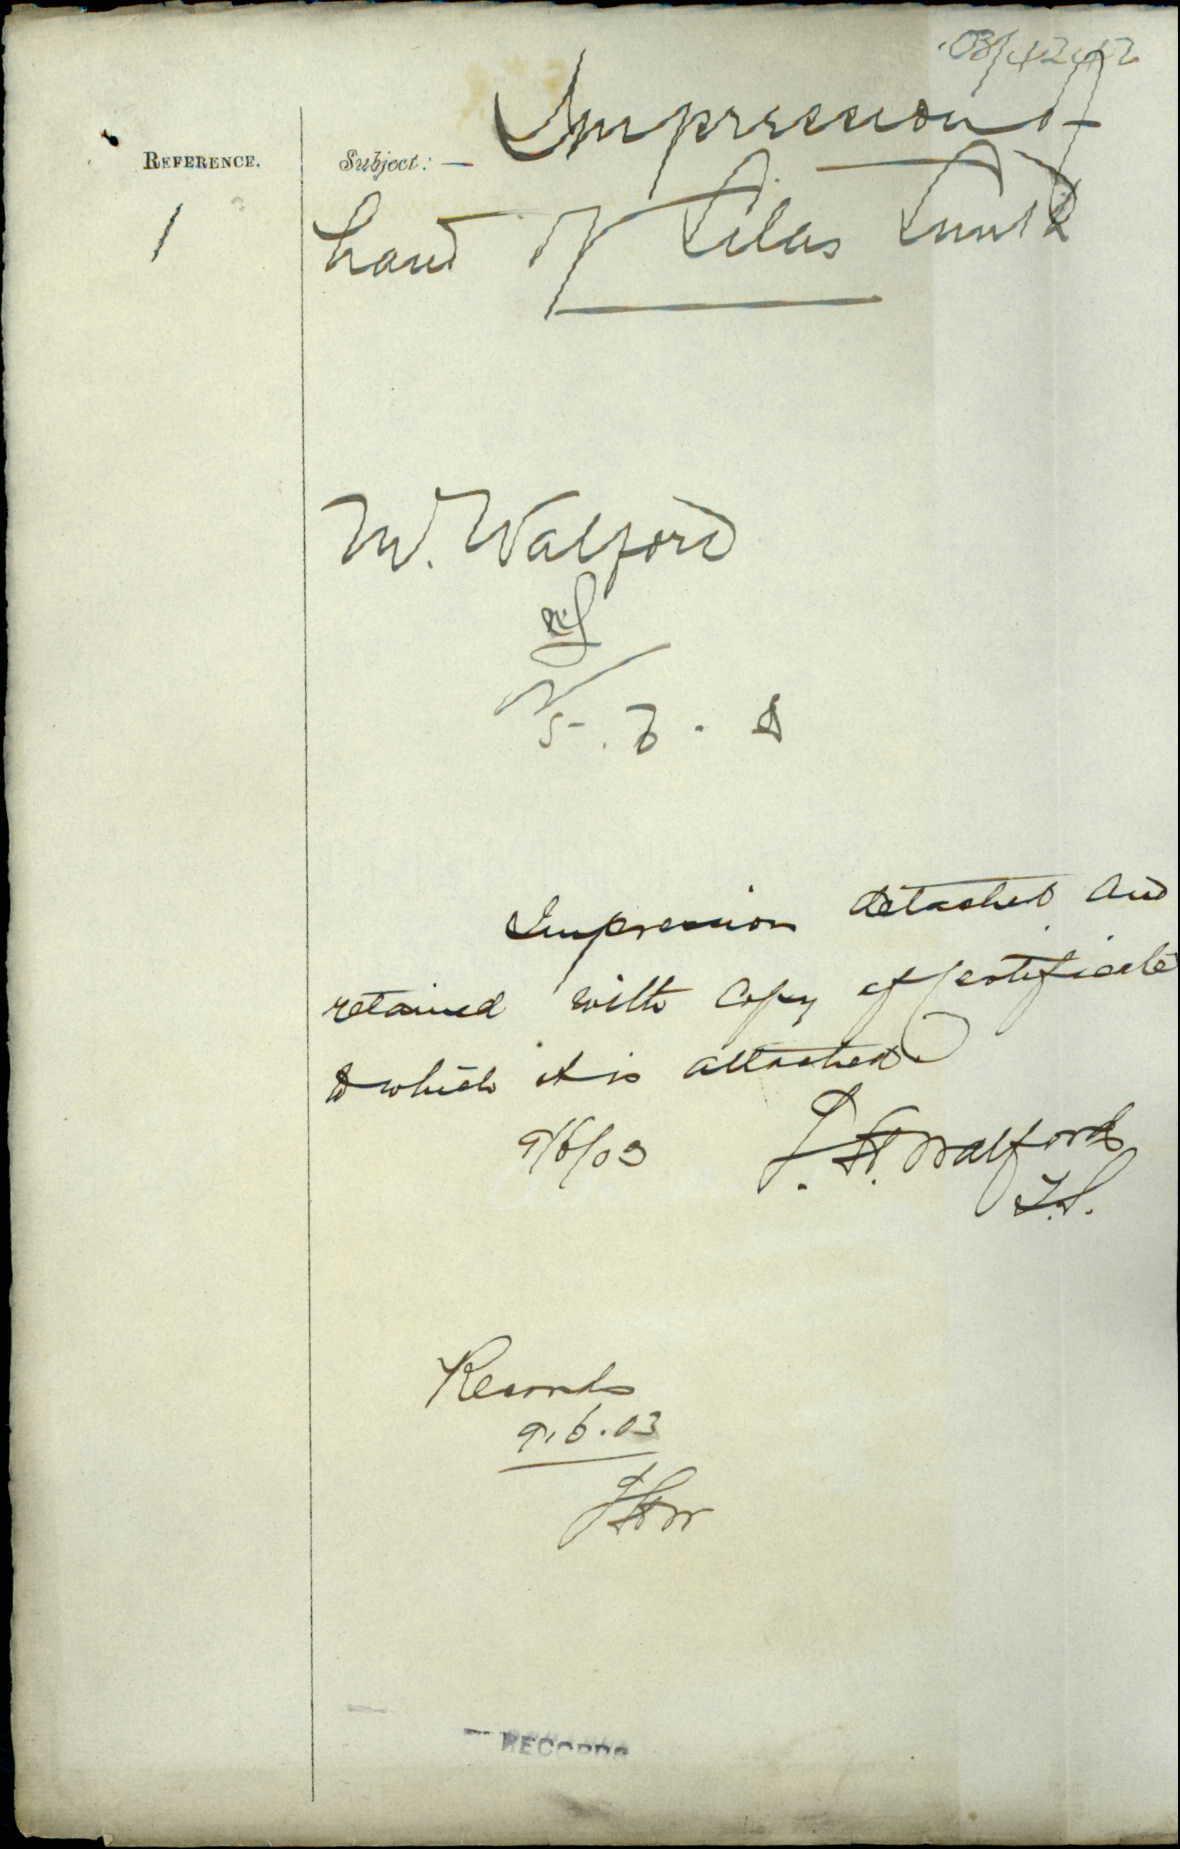 03/4242
REFERENCE.
Subject: — Impression of
1
hand of Silas Smith
M. Walford
5.6.
Impression detached and
retained with Copy of Certificate
to which it is attached
9/6/03 J. H. Walford
I.S.
Records
9.6.03
JHW
RECORDS